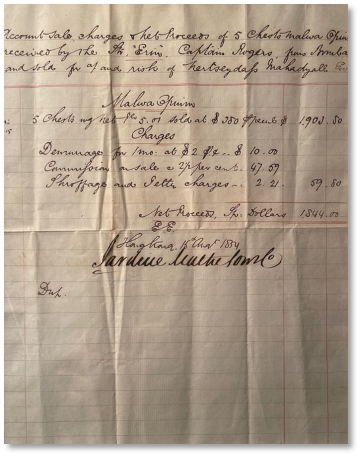 Account sale, charges & net Proceeds of 5 Chests Malwa Opium
received by the Str. "Erin", Captain Rogers, from Bombay
and sold for a/c and risk of Hertseydass Mahadyall
Malwa Opium
5 Chests wg net 5.01 sold at $ 380 $ 1903.80
Charges
Demurrage for 1 mo: at $ 2 .. $ 10.00
Commission on sale @ 2½ per cent.. 47.59
Shroffage and Petty charges .. 2.21. 59.80
Net Proceeds, Sp. Dollars 1844.00
E.E.
Hong Kong
Jardine Matheson & Co
Dup.